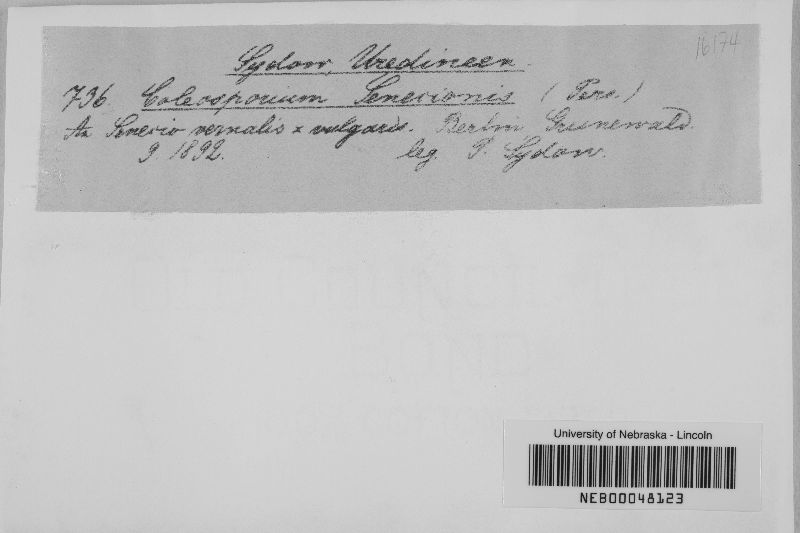 16174
Sydow, Uredineen.
736. Coleosporium Senecionis (Pers.)
An Senecio vernalis x vulgaris. Berlin Grunewald.
9 1892. leg. P. Sydow.
University of Nebraska - Lincoln
NEB00048123